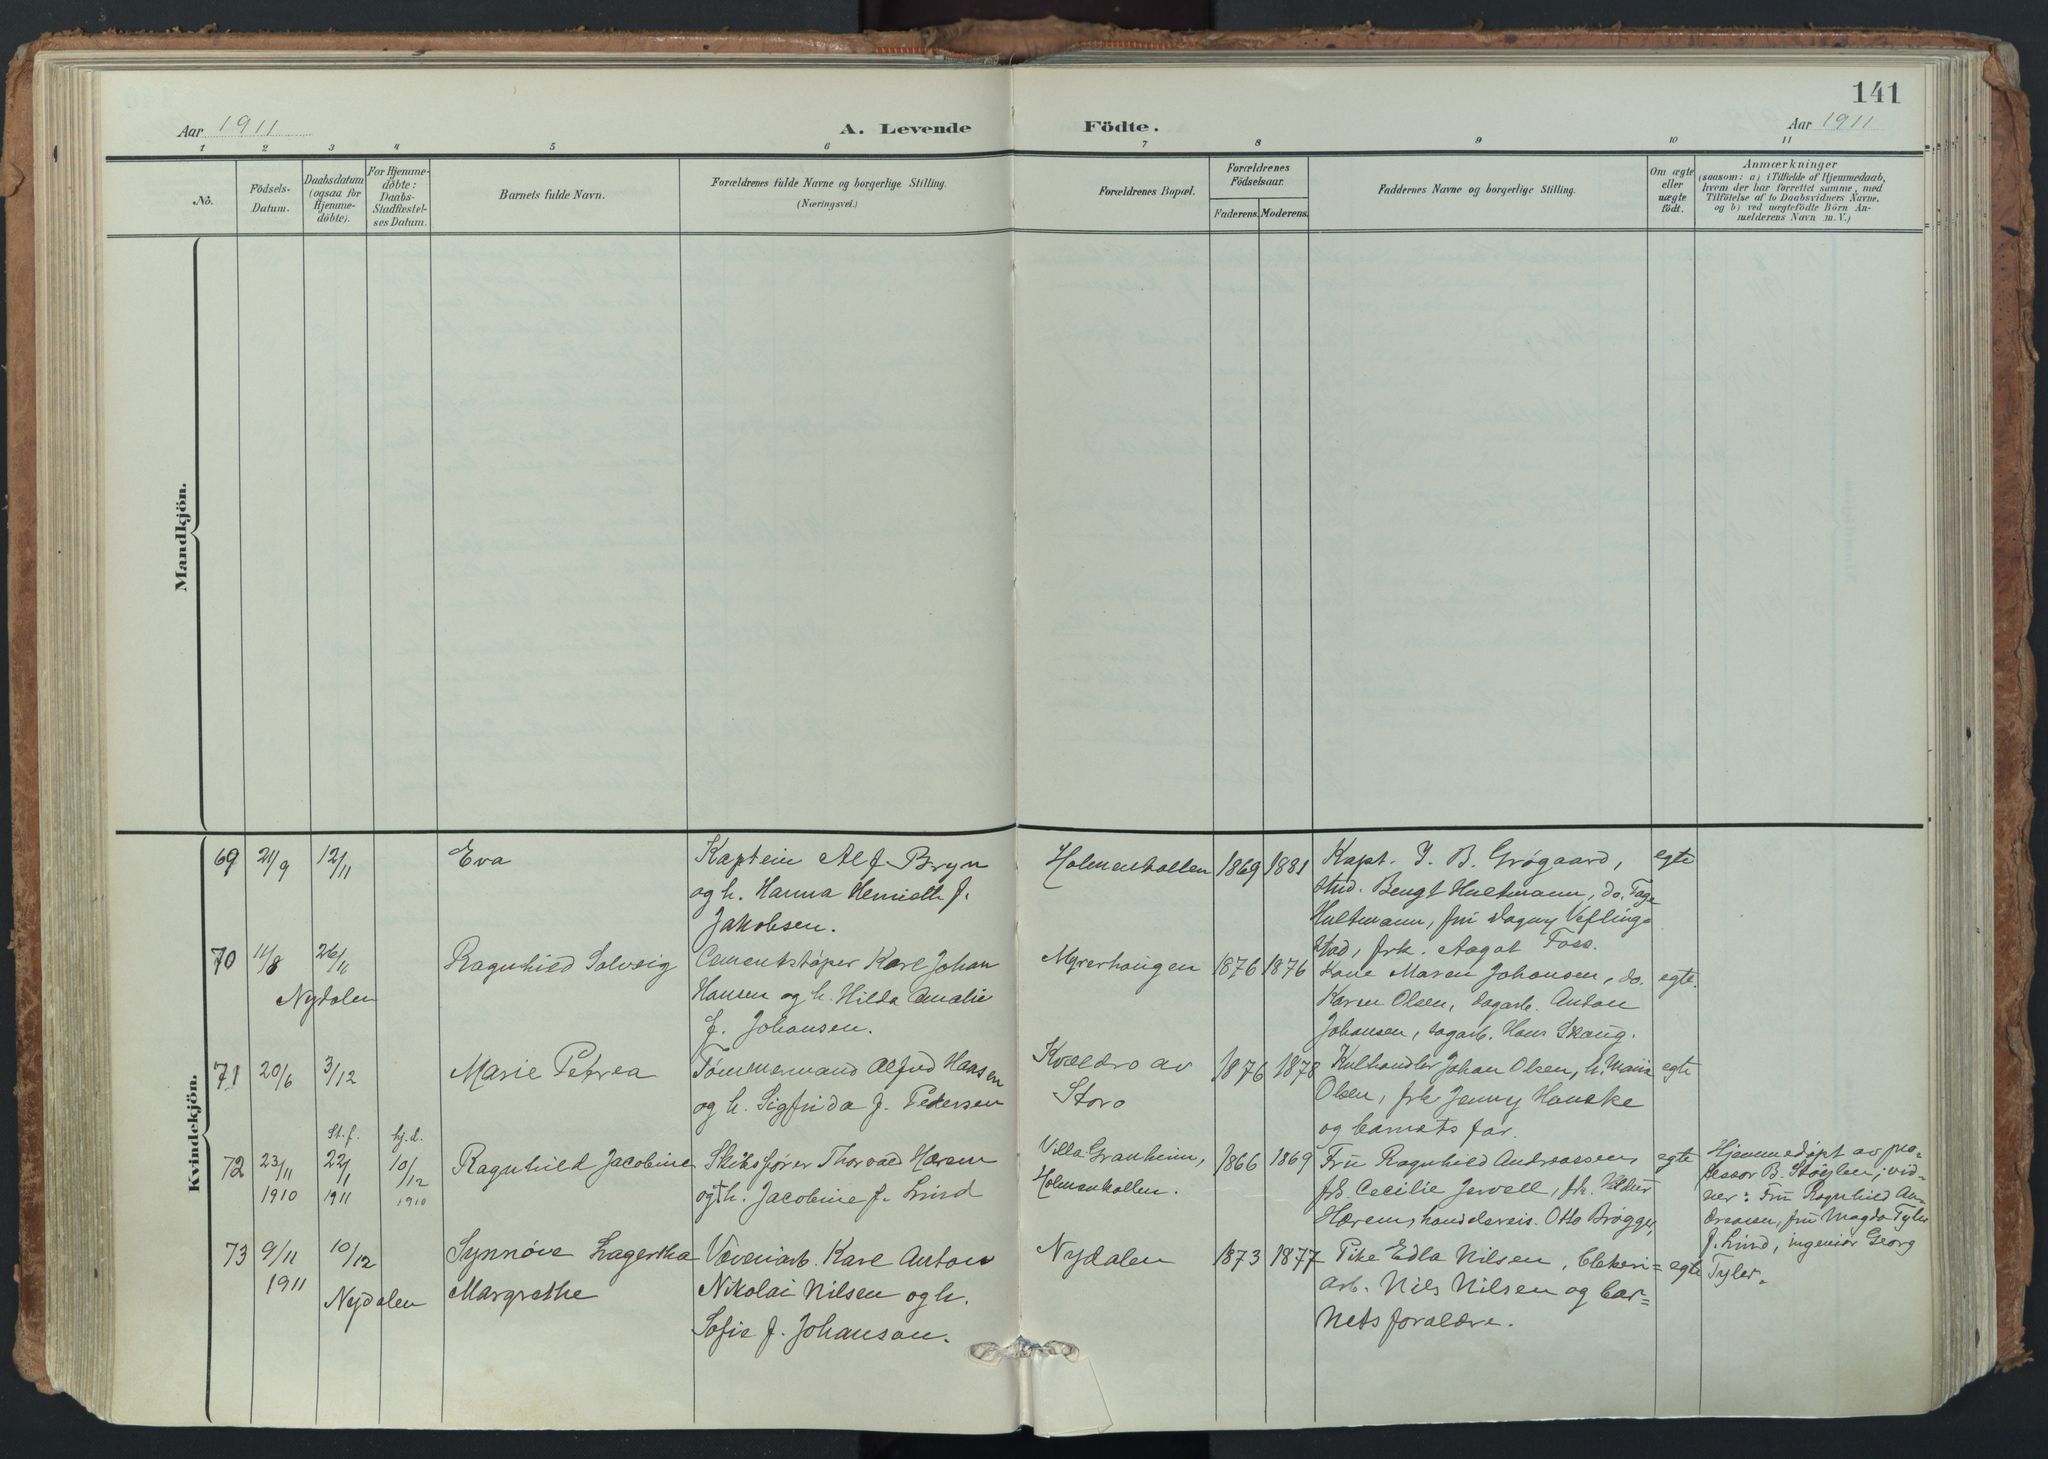 141
Aar 1911
A. Levende Födte.
Aar 1911
1 2 3 4 5 6 7 8 9 10 11
No.
Födsels-
Datum.
Daabsdatum
(ogsaa for
Hjemme-
döbte).
For Hjemme-
döbte:
Daabs-
Stadfæstel-
ses Datum.
Barnets fulde Navn.
Forældrenes fulde Navne og borgerlige Stilling.
(Næringsvei.)
Forældrenes Bopæl.
Forældrenes
Födselsaar.
Faderens. Moderens.
Faddernes Navne og borgerlige Stilling.
Om ægte
eller
uægte
födt.
Anmærkninger
(saasom: a) i Tilfælde af Hjemmedaab,
hvem der har forrettet samme, med
Tilföielse af to Daabsvidners Navne,
og b) ved uægtefödte Börn An-
melderens Navn m. V.)
Mandkjön.
Kvindekjön.
69 21/9 12/11
Eva
Kaptein Alf Bryn
og h. Hanna Henriette f.
Jakobsen.
Holmenkollen
1869 1881
Kapt. J. B. Grøgaard,
stud. Bengt Hultmann, do. Tage
Hultmann, fru Dagny Vefling-
stad, frk. Aagot Foss.
egte
70 11/8 26/11
Nydalen
Ragnhild Solveig
Cementstøper Karl Johan
Hansen og h. Hilda Amalie
f. Johansen.
Myrerhaugen
1876 1876
Kone Maren Johansen, do.
Karen Olsen, dagarb. Anton
Johansen, dagarb. Hans Skaug.
egte.
71 20/6 3/12
Marie Petrea
Tømmermand Alfred Hansen
og h. Sigfrida f. Pedersen
Kveldro av
Storo
1876 1878
Kulhandler Johan Olsen, h. Maria
Olsen, frk Jenny Hanske
og barnets far.
egte
St.f. hj.d.
72 23/11 1910 22/1 1911 10/12 1910
Ragnhild Jacobine
Skibsfører Thorvald Hærem
og h. Jacobine f. Lind
Villa Granheim,
Holmenkollen.
1866 1869
Fru Ragnhild Andreassen,
frk. Cecilie Jervell, frk.
Hærem, handelsreis. Otto Brøgger,
egte
Hjemmedøpt av pro-
fessor B. Støylen; vid-
ner: Fru Ragnhild An-
dreasen, fru Magda Tyler
f. Lind, ingeniør Georg
Tyler.
73 9/11 1911 10/12
Nydalen
Synnøve Lagertha
Margrethe
Væveriarb. Karl Anton
Nikolai Nilsen og h.
Sofie f. Johanson.
Nydalen
1873 1877
Pike Edla Nilsen, blekeri-
arb. Nils Nilsen og bar-
nets forældre.
egte